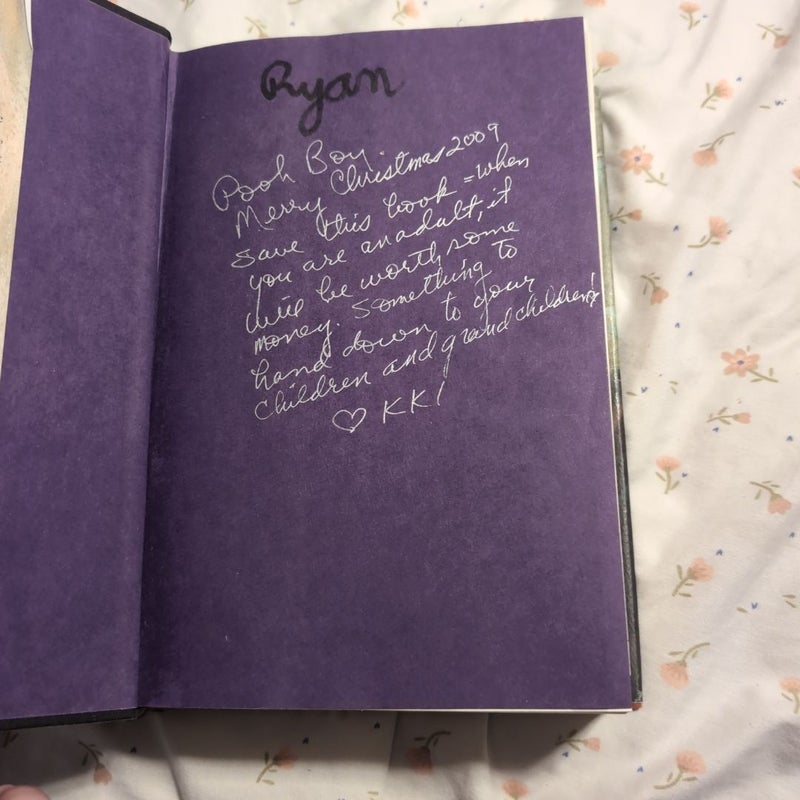 Ryan
Pooh Boy.
Merry Christmas 2009
Save this book = when
you are an adult, it
will be worth some
money. Something to
hand down to your
children and grandchildren!
♡ KK!